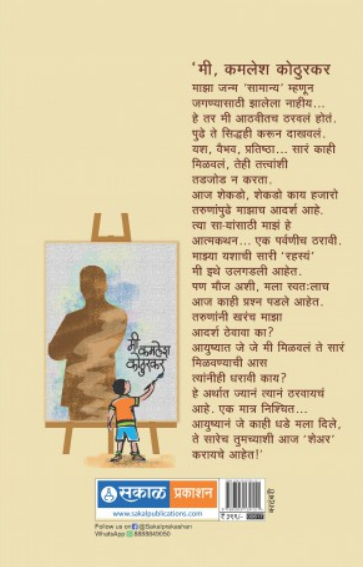 'मी, कमलेश कोठुरकर
माझा जन्म 'सामान्य' म्हणून
जगण्यासाठी झालेला नाहीय...
हे तर मी आठवीतच ठरवलं होतं.
पुढे ते सिद्धही करून दाखवलं.
यश, वैभव, प्रतिष्ठा... सारं काही
मिळवलं, तेही तत्त्वांशी
तडजोड न करता.
आज शेकडो, शेकडो काय हजारो
तरुणांपुढे माझाच आदर्श आहे.
त्या साऱ्यांसाठी माझं हे
आत्मकथन... एक पर्वणीच ठरावी.
माझ्या यशाची सारी 'रहस्यं'
मी इथे उलगडली आहेत.
पण मौज अशी, मला स्वतःलाच
आज काही प्रश्न पडले आहेत.
तरुणांनी खरंच माझा
आदर्श ठेवावा का?
आयुष्यात जे जे मी मिळवलं ते सारं
मिळवण्याची आस
त्यांनीही धरावी काय?
हे अर्थात ज्यानं त्यानं ठरवायचं
आहे. एक मात्र निश्चित...
आयुष्यानं जे काही धडे मला दिले,
ते सारेच तुमच्याशी आज 'शेअर'
करायचे आहेत!'
मी
कमलेश
कोठुरकर
सकाळ प्रकाशन
www.sakalpublications.com
Follow us on @Sakalprakashan
WhatsApp 8888849050
कादंबरी